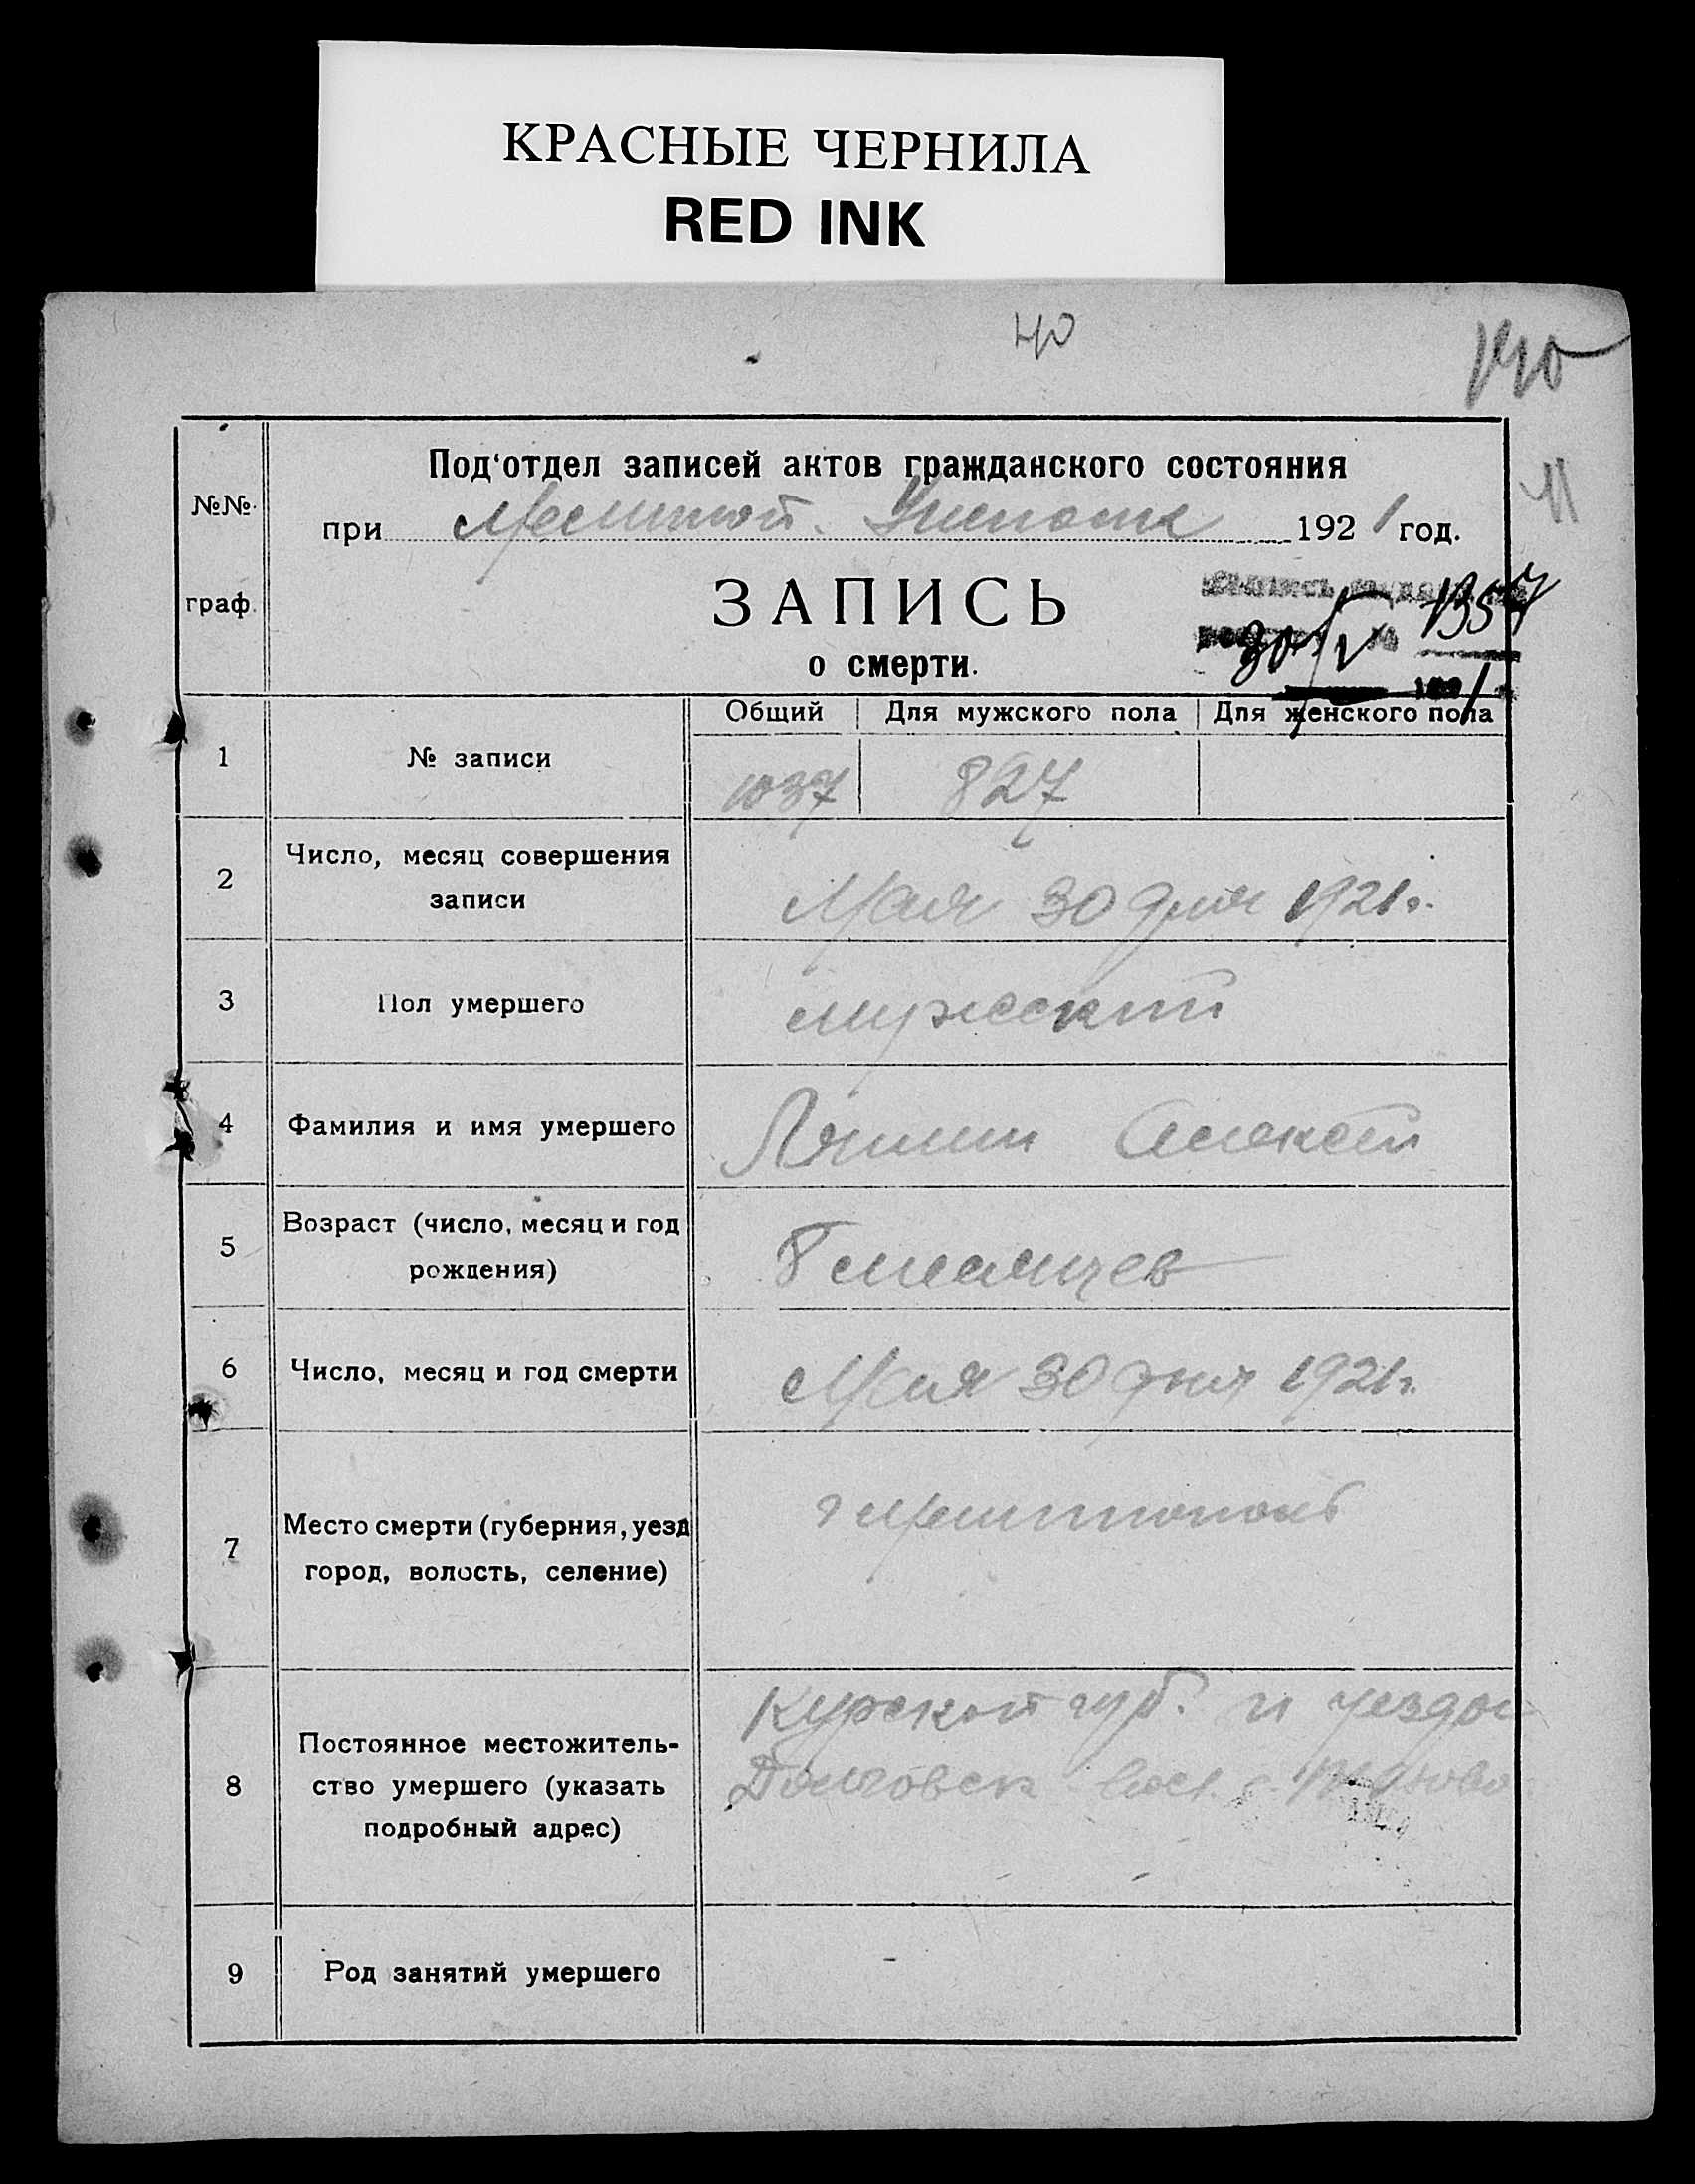 КРАСНЫЕ ЧЕРНИЛА
RED INK
40
140
11
№№
граф.
Под‘отдел записей актов гражданского состояния
при Мелитоп. 1921 год.
ЗАПИСЬ
о смерти.
1357
30/V
Общий Для мужского пола Для женского пола
1 № записи 1037 827
2 Число, месяц совершения
записи
Мая 30 дня 1921 г.
3 Пол умершего мужской
4 Фамилия и имя умершего Алексей
5 Возраст (число, месяц и год
рождения)
8 месяцев
6 Число, месяц и год смерти Мая 30 дня 1921 г.
7 Место смерти (губерния, уезд
город, волость, селение)
г Мелитополь
8 Постоянное местожитель-
ство умершего (указать
подробный адрес)
Курской губ. и уезда
вол. с.
9 Род занятий умершего -